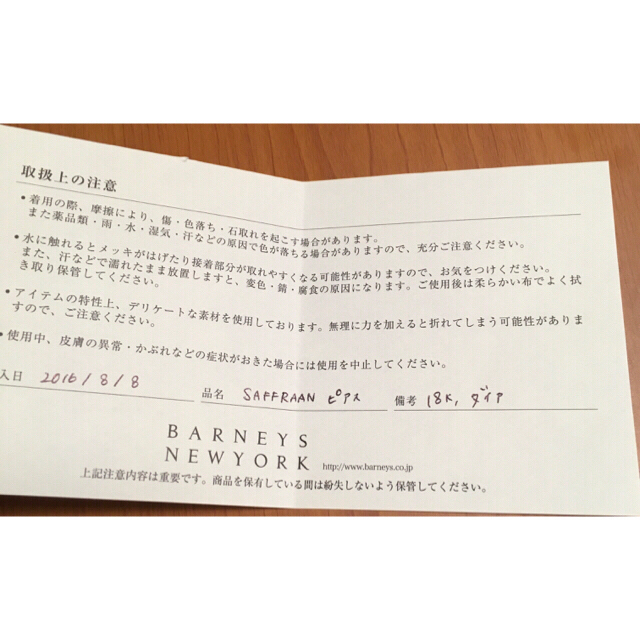 取扱上の注意
•着用の際、摩擦により、傷・色落ち・石取れを起こす場合があります。
また薬品類・雨・水・湿気・汗などの原因で色が落ちる場合がありますので、充分ご注意ください。
•水に触れるとメッキがはげたり接着部分が取れやすくなる可能性がありますので、お気をつけください。
また、汗などで濡れたまま放置しますと、変色・錆・腐食の原因になります。ご使用後は柔らかい布でよく拭
き取り保管してください。
•アイテムの特性上、デリケートな素材を使用しております。無理に力を加えると折れてしまう可能性がありま
すので、ご注意ください。
•使用中、皮膚の異常・かぶれなどの症状がおきた場合には使用を中止してください。
入日 2016/8/8 品名 SAFFRAAN ピアス 備考 18K, ダイア
BARNEYS
NEWYORK http://www.barneys.co.jp
上記注意内容は重要です。商品を保有している間は紛失しないよう保管してください。